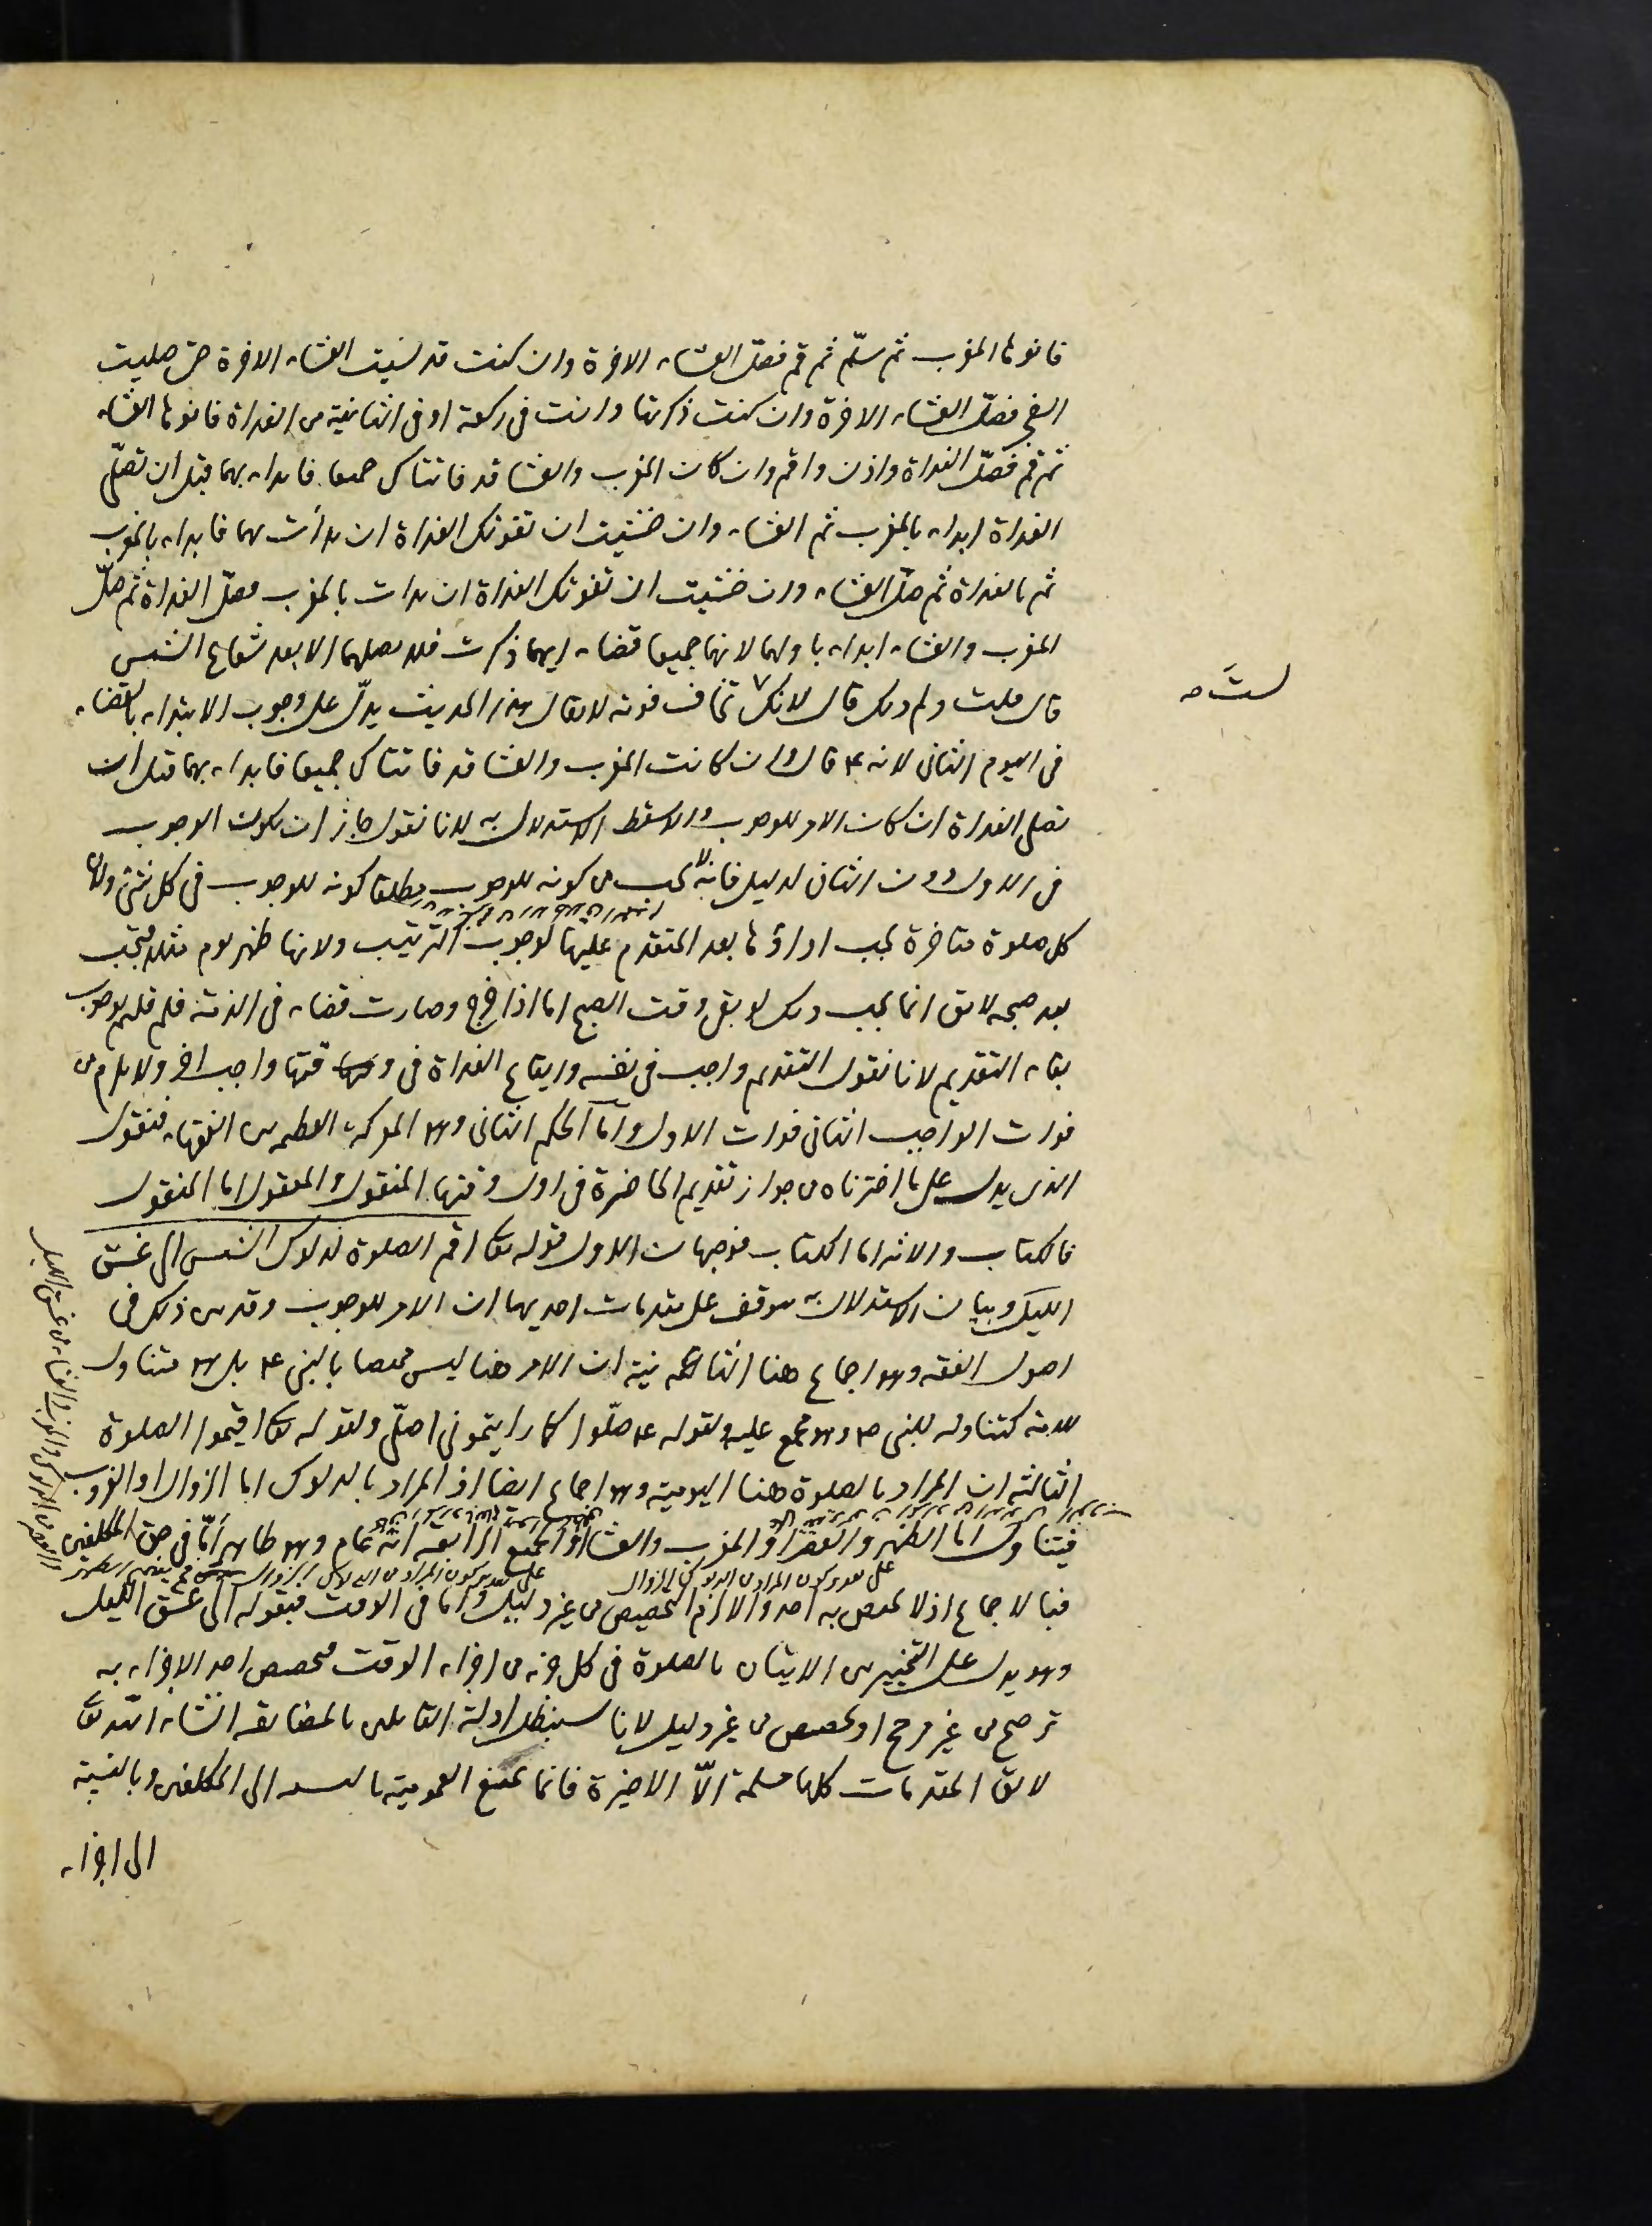 فانوها المغرب ثم سلّم ثم قم فصلّ العشاء الاخرة وان كنت قد نسيت العشاء الاخرة حتى صليت
الفجر فصلّ العشاء الاخرة وان كنت ذكرتها وانت فى ركعة او فى الثانية من الغداة فانوها العشاء
ثم قم فصلّ الغداة واذن واقم وان كان المغرب والعشا قد فاتتاك جميعا فابداء بهما قبل ان تصلّى
الغداة ابداء بالمغرب ثم العشاء وان خشيت ان تفوتك الغداة ان بدأت بهما فابداء بالمغرب
ثم بالغداة ثم صلّ العشاء وان خشيت ان تفوتك الغداة ان بدات بالمغرب فصلّ الغداة ثم صلّ
المغرب والعشاء ابداء باولهما لانهما جميعا قضاء ايهما ذكرت فلا تصلهما الا بعد شعاع الشمس
قال قلت ولم ذلك قال لانك لست تخاف فوته لا يقال هذا الحديث يدلّ على وجوب الابتداء بالقضاء
فى اليوم الثانى لانه ع قال وان كانت المغرب والعشا قد فاتتاك جميعا فابداء بهما قبل ان
تصلى الغداة ان كان الامر للوجوب والا سقط الاستدلال به لانا نقول جاز ان يكون الوجوب
فى الاول دون الثانى لدليل فانه لا يجب من كونه للوجوب مطلقا كونه للوجوب فى كل شئ ولان
كل صلوة متاخرة يجب اداؤها بعد المتقدم عليها لوجوب الترتيب ولانها ظهر يوم مثلا فيجب
بعد صبحه لا يق انما يجب ذلك لو بقى وقت الصبح اما اذا خرج وصارت قضاء فى الذمة فلم قلتم بوجوب
بقاء التقديم لانا نقول التقديم واجب فى نفسه وايقاع الغداة فى وقتها واجب اخر ولا يلزم من
فوات الواجب الثانى فوات الاول واما الحكم الثانى وهو المعركة العظيمة بين الفقهاء فنقول
الذى يدل على ما اخترناه من جواز تقديم الحاضرة فى اول وقتها المنقول والمعقول اما المنقول
فالكتاب والاثر اما الكتاب فوجهان الاول قوله تعا اقم الصلوة لدلوك الشمس الى غسق
الليل وبيان الاستدلال به يتوقف على مقدمات احديها ان الامر للوجوب وقد بين ذلك فى
اصول الفقه وهو اجماع هنا الثانية ان الامر هنا ليس مختصا بالنبى ع بل هو متناول
للامة كتناوله للنبى ص وهو مجمع عليه ولقوله ع صلّوا كما رايتمونى اصلّى ولقوله تعا اقيموا الصلوة
الثالثة ان المراد بالصلوة هنا اليومية وهو اجماع ايضا اذ المراد بالدلوك اما الزوال او الغروب
فيتناول اما الظهر والعصر او المغرب والعشا او الجميع الرابعة انه عام وهو ظاهر امّا فى حق المكلفين
على تقدير كون المراد من الدلوك الزوال
فبالاجماع اذ لا يختص به احد والا لزم التخصيص من غير دليل واما فى الوقت فبقوله الى غسق الليل
وهو يدل على التخيير من الاتيان بالصلوة فى كل جزء من اجزاء الوقت فتخصيص احد الاجزاء به
ترجيح من غير مرجح او تخصيص من غير دليل لانا سنبطل ادلة القايلين بالمضايقة انشاء الله تعا
لا يق المقدمات كلها مسلمة الاّ الاخيرة فانا نمنع العمومية بالنسبة الى المكلفين وبالنسبة
الى اجزاء